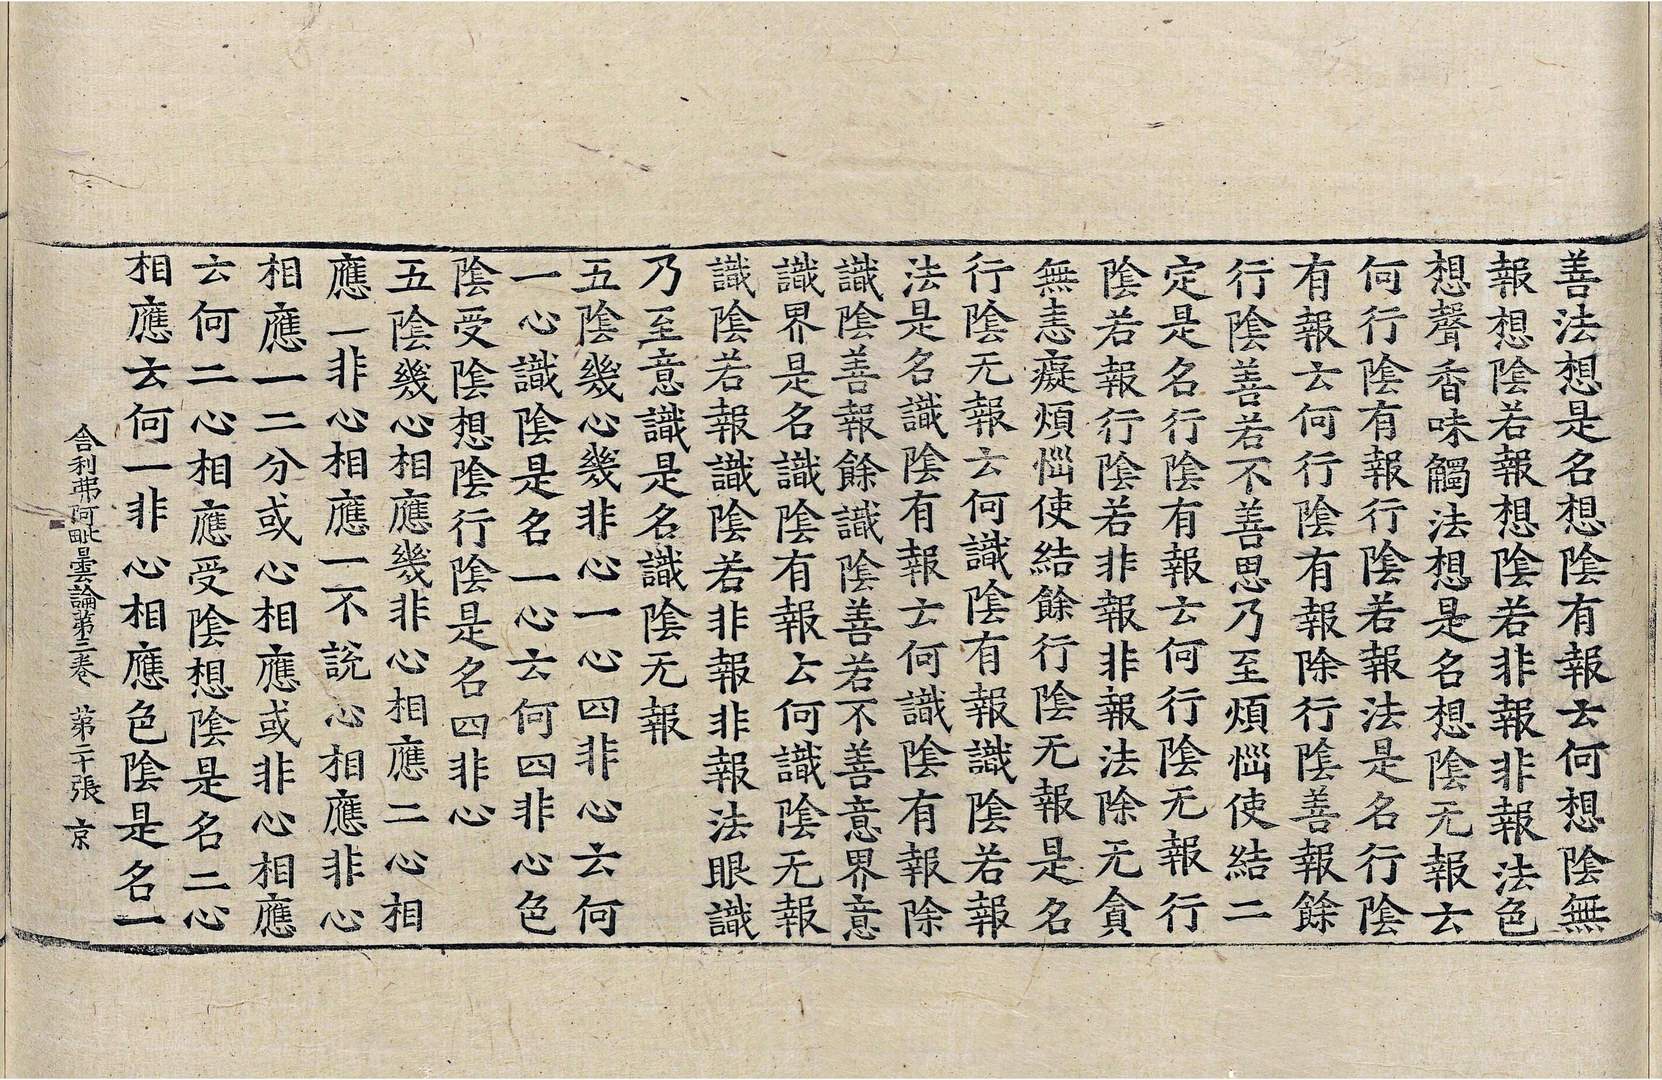 善法想是名想陰有報云何想陰無
報想陰若報想陰若非報非報法色
想聲香味觸法想是名想陰无報云
何行陰有報行陰若報法是名行陰
有報云何行陰有報除行陰善報餘
行陰善若不善思乃至煩惱使結二
定是名行陰有報云何行陰无報行
陰若報行陰若非報非報法除无貪
無恚癡煩惱使結餘行陰无報是名
行陰无報云何識陰有報識陰若報
法是名識陰有報云何識陰有報除
識陰善報餘識陰善若不善意界意
識界是名識陰有報云何識陰无報
識陰若報識陰若非報非報法眼識
乃至意識是名識陰无報
五陰幾心幾非心一心四非心云何
一心識陰是名一心云何四非心色
陰受陰想陰行陰是名四非心
五陰幾心相應幾非心相應二心相
應一非心相應一不說心相應非心
相應一二分或心相應或非心相應
云何二心相應受陰想陰是名二心
相應云何一非心相應色陰是名一
舍利弗阿毗曇論第三卷　第二十張　京